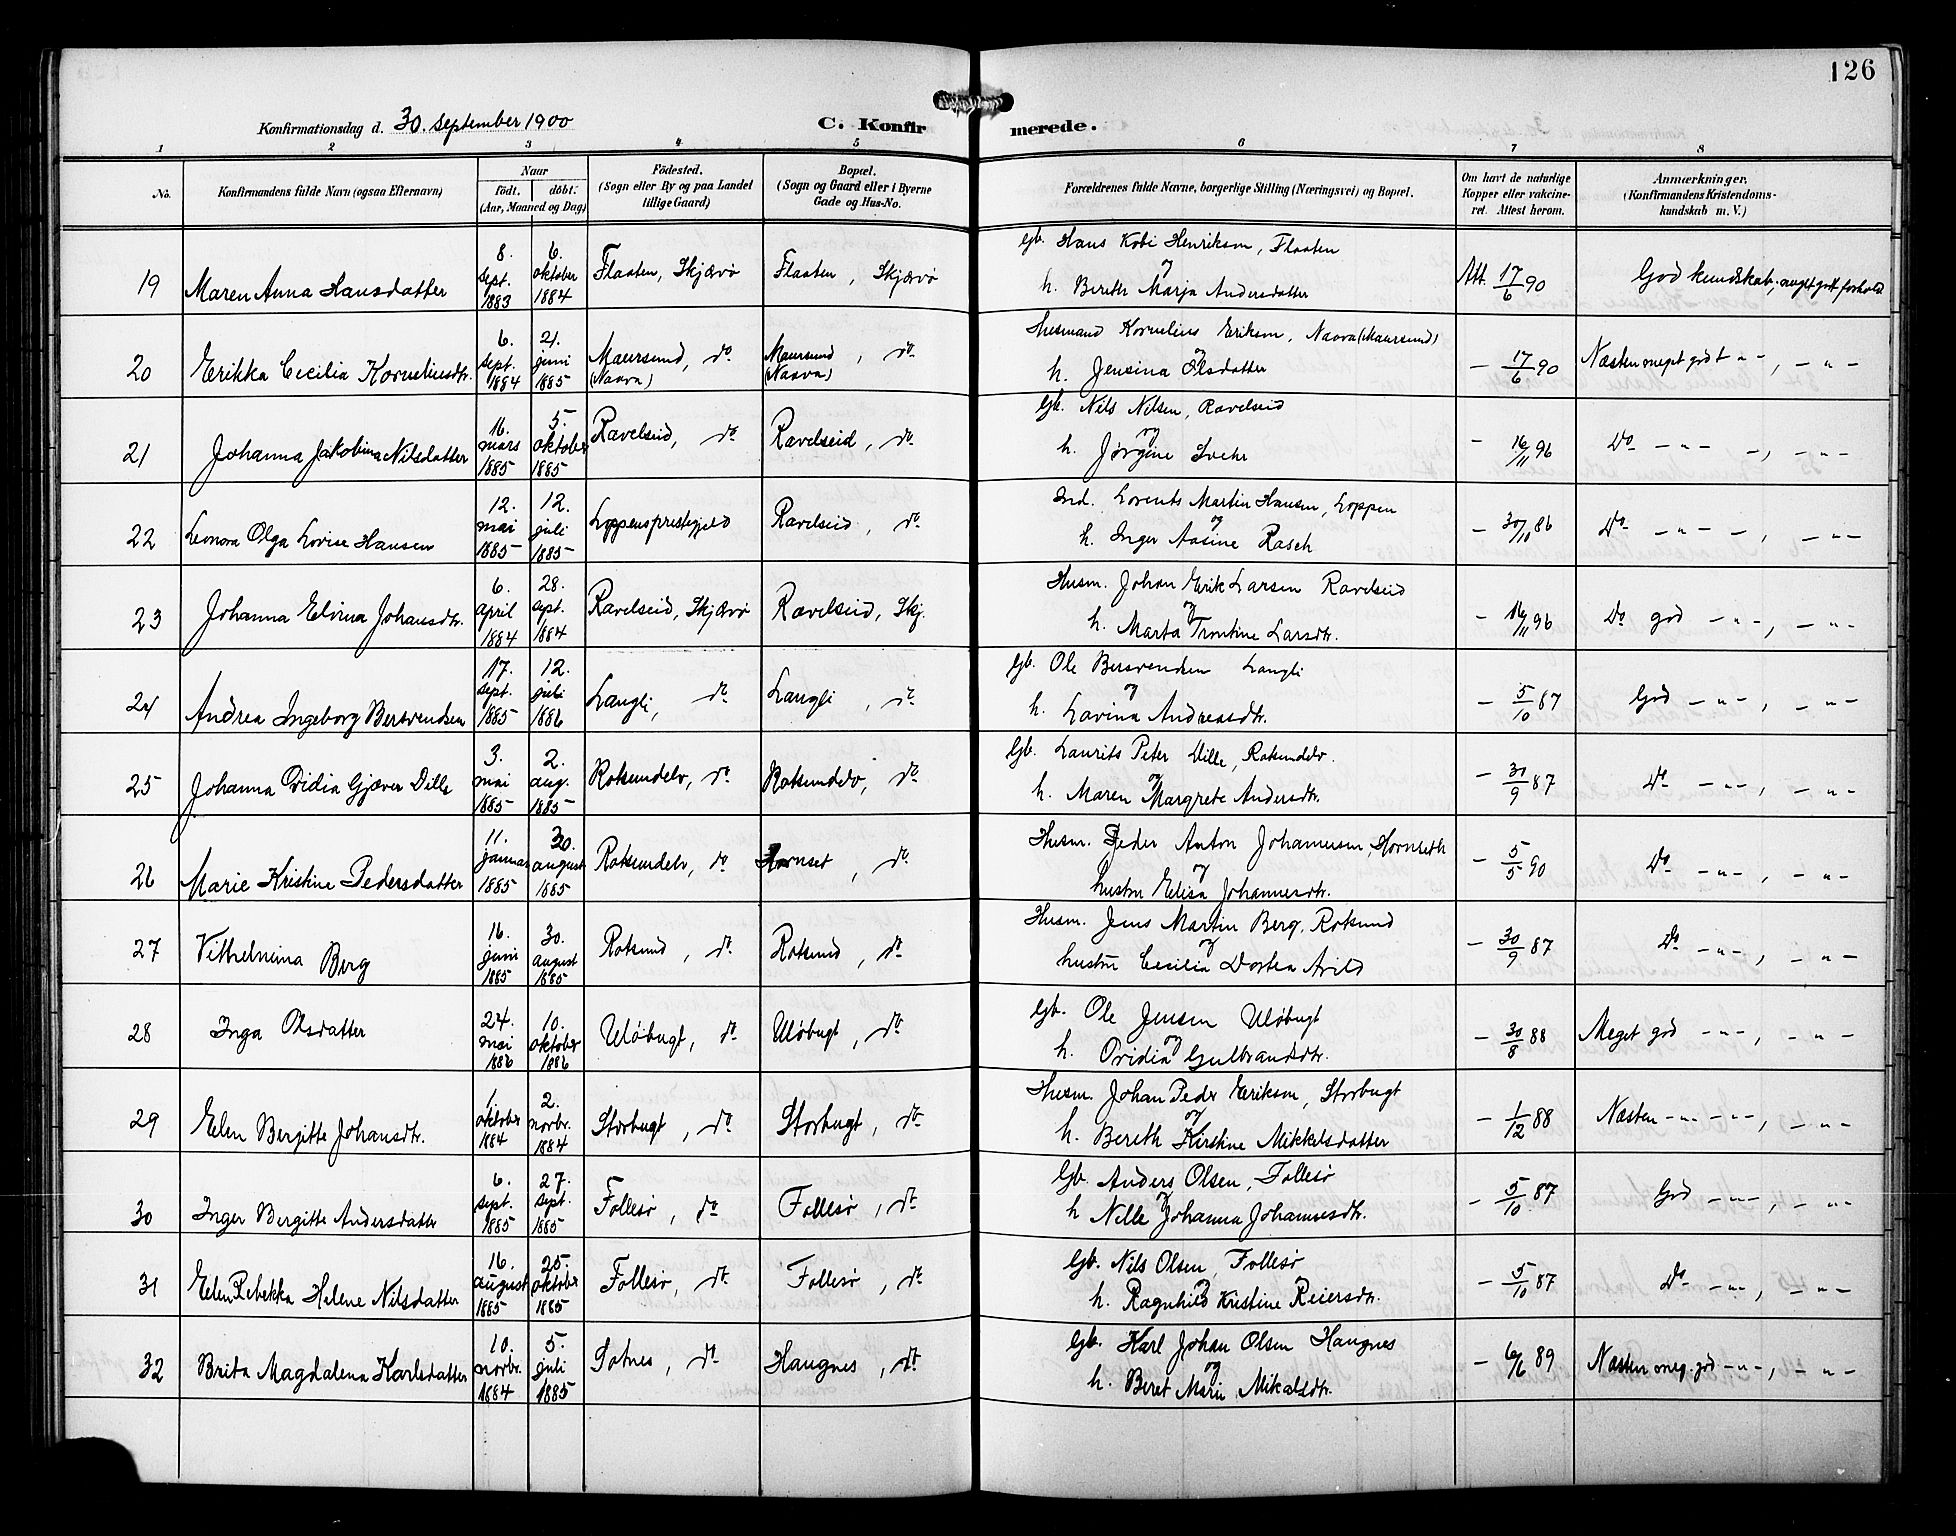 126
Konfirmationsdag d. 30. september 1900
C. Konfirmerede.
1 2 3 4 5 6 7 8
No.
Konfirmandens fulde Navn (ogsaa Efternavn)
Naar
födt. döbt.
(Aar, Maaned og Dag)
Födested.
(Sogn eller By og paa Landet
tillige Gaard)
Bopæl.
(Sogn og Gaard eller i Byerne
Gade og Hus-No.
Forældrenes fulde Navne, borgerlige Stilling (Næringsvei) og Bopæl.
Om havt de naturlige
Kopper eller vakcine-
ret. Attest herom.
Anmærkninger.
(Konfirmandens Kristendoms-
kundskab m. V.)
19 Maren Anna Hansdatter 8. sept. 1883 6. oktober 1884 Flaaten, Skjærvø Flaaten, Skjærvø
Gb. Hans Kobi Henriksen, Flaaten
og
h. Bereth Marja Andersdatter
Att. 17/6 90 God kundskab, meget godt forhold
20 Erikka Cecilia Korneliusdtr. 6. sept. 1884 21. juni 1885 Maursund, do (Naava) Maursund, do (Naava)
Husmand Kornelius Eriksen, Naava (Maursund)
og
h. Jensina Olsdatter
— 17/6 90 Næsten meget god — " —, — " —
21 Johanna Jakobina Nilsdatter 16. mars 1885 5. oktober 1885 Ravelseid, do Ravelseid, do
Gb. Nils Nilsen, Ravelseid
og
h. Jørgine Svehr
— 16/11 96 Do — " — —, — " —
22 Leonora Olga Lovise Hansen 12. mai 1885 12. juli 1885 Loppens prestegjeld Ravelseid, do
Ind. Lorents Martin Hansen, Loppen
og
h. Inger Aasine Rasch
— 30/10 86 Do — " — —, — " —
23 Johanna Elvina Johansdtr. 6. april 1884 28. sept. 1884 Ravelseid, Skjærvø Ravelseid, Skj.
Husm. Johan Erik Larsen Ravelseid
og
h. Marta Trontine Larsdtr.
— 16/11 96 Do god — " —, — " —
24 Andrea Ingeborg Bersvendsen 17. sept. 1885 12. juli 1886 Langli, do Langli, do
Gb. Ole Bersvendsen Langli
og
h. Lavina Andreasdtr.
— 5/10 87 God — " —, — " —
25 Johanna Ovidia Gjæver Dille 3. mai 1885 2. aug. 1885 Rotsundelv, do Rotsundelv, do
Gb. Laurits Peter Dille, Rotsundelv.
og
h. Maren Margrete Andersdtr.
— 30/9 87 Do — " —, — " —
26 Marie Kristine Pedersdatter 11. januar 1885 30. august 1885 Rotsundelv, do Hornset, do
Husm. Peder Anton Johannesen, Hornseth
og
hustru Elisa Johannesdtr.
— 5/5 90 Do — " —, — " —
27 Vilhelmina Berg 16. juni 1885 30. august 1885 Rotsund, do Rotsund, do
Husm. Jens Martin Berg, Rotsund
og
hustru Cecilia Dortea Arild
— 30/9 87 Do — " —, — " —
28 Inga Olsdatter 24. mai 1886 10. oktober 1886 Uløbugt, do Uløbugt, do
Gb. Ole Jensen Uløbugt
og
h. Ovidia Gulbrandsdtr.
— 30/8 88 Meget god — " —, — " —
29 Elen Bergitte Johansdtr. 1. oktober 1884 2. novbr. 1884 Storbugt, do Storbugt, do
Husm. Johan Peder Eriksen, Storbugt
og
h. Bereth Kirstine Mikkelsdatter
— 1/12 88 Næsten — " — — " —, — " —
30 Inger Bergitte Andersdatter 6. sept. 1885 27. sept. 1885 Follesø, do Follesø, do
Gb. Anders Olsen, Follesø
og
h Nille Johanna Johannesdtr.
— 5/10 87 God — " —, — " —
31 Elen Rebekka Helene Nilsdatter 16. august 1885 25. oktober 1885 Follesø, do Follesø, do
Gb. Nils Olsen, Follesø
og
h. Ragnhild Kristine Reiersdtr.
— 5/10 87 Do — " —, — " —
32 Brita Magdalena Karlsdatter 10. novbr. 1884 5. juli 1885 Sotnes, do Haugnes, do
Gb. Karl Johan Olsen Haugnes
og
h. Beret Marie Mikalsdtr.
— 6/6 89 Næsten meg. god — " —, — " —